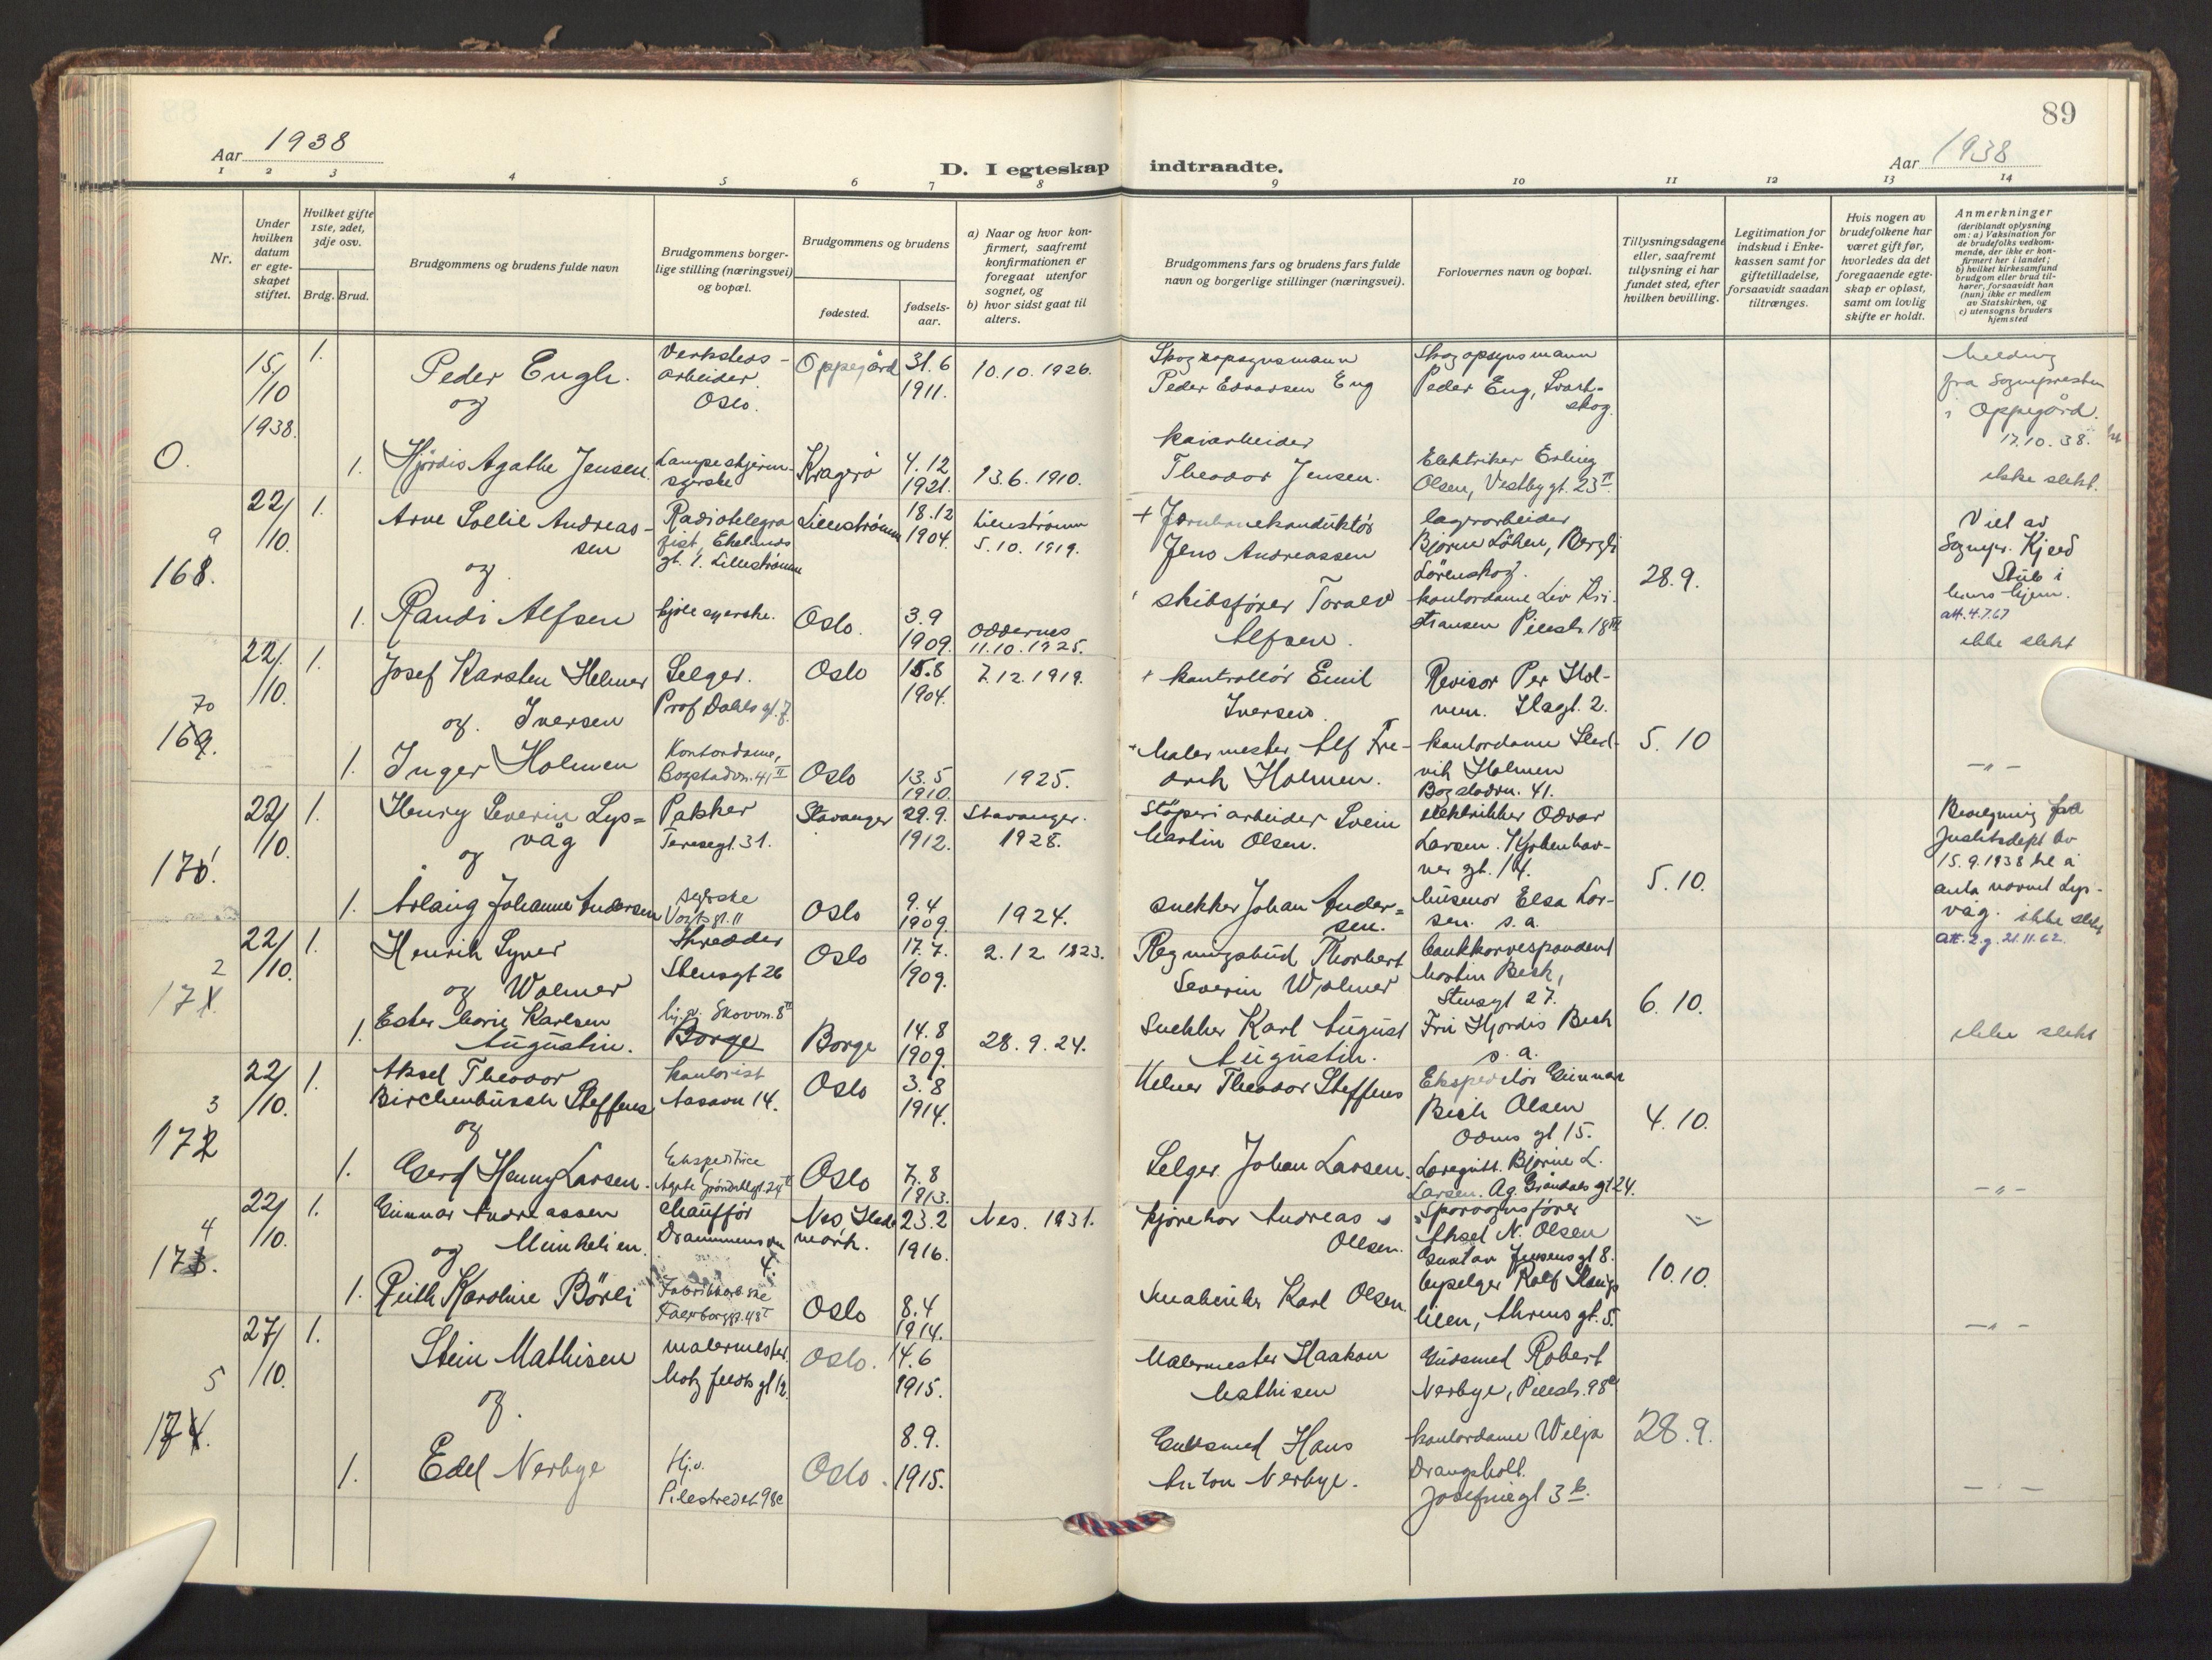 89
Aar 1938
D. I egteskap indtraadte.
Aar 1938
1 2 3 4 5 6 7 8 9 10 11 12 13 14
Nr.
Under
hvilken
datum
er egte-
skapet
stiftet.
Hvilket gifte
1ste, 2det,
3dje osv.
Brdg. Brud.
Brudgommens og brudens fulde navn
Brudgommens borger-
lige stilling (næringsvei)
og bopæl.
Brudgommens og brudens
fødested.
fødsels-
aar.
a) Naar og hvor kon-
firmert, saafremt
konfirmationen er
foregaat utenfor
sognet, og
b) hvor sidst gaat til
alters.
Brudgommens fars og brudens fars fulde
navn og borgerlige stillinger (næringsvei).
Forlovernes navn og bopæl.
Tillysningsdagene
eller, saafremt
tillysning ei har
fundet sted, efter
hvilken bevilling.
Legitimation for
indskud i Enke-
kassen samt for
giftetilladelse,
forsaavidt saadan
tiltrænges.
Hvis nogen av
brudefolkene har
været gift før,
hvorledes da det
foregaaende egte-
skap er opløst,
samt om lovlig
skifte er holdt.
Anmerkninger
(deriblandt oplysning
om: a) Vaksination for
de brudefolks vedkom-
mende, der ikke er kon-
firmert her i landet;
b) hvilket kirkesamfund
brudgom eller brud til-
hører, forsaavidt han
(hun) ikke er medlem
av Statskirken, og
c) utensogns bruders
hjemsted
0.
15/
/10
1938.
1.
Peder Engh.
og
Verksteds-
arbeider.
Oslo.
Oppegård
31.6
1911.
10.10.1926.
Skogopsynsmann
Peder Edvardsen Eng
Skogopsynsmann
Peder Eng, Svart-
skog.
Melding
fra Sognepresten
i Oppegård.
17.10.38.
1.
Hjördis Agathe Jensen.
Lampeskjerm-
syerske
Kragerö
4.12
1921.
13.6.1910.
Kaiarbeider
Theodor Jensen.
Elektriker Erling
Olsen, Vestbygt. 23 II.
ikke slekt.
9
168.
22/
/10.
1.
Arne Sollie Andreas-
sen
og
Radiotelegra
fist, Ekelunds
gt. 1. Lilleström
Lilleström
18.12
1904.
Lilleström
5.10.1919.
+ Jernbanekonduktör
Jens Andreassen
lagerarbeider
Bjarne Löken, Bergli
Lörenskog.
28.9.
Viet av
Sognepr. Kjeld
Stub i
hans hjem.
att. 4.7.67
1.
Randi Alfsen
kjolesyerske.
Oslo.
3.9
1909.
Oddernes
11.10.1925.
skibsförer Toralv
Alfsen.
kontordame Liv Kri-
stiansen Pilestr. 18 III
ikke slekt
70
169.
22/
/10.
1.
Josef Karsten Helmer
og. Iversen
Selger.
Prof Dahls gt. 7.
Oslo
15.8
1904.
7.12.1919.
+ kontrollör Emil
Iversen.
Revisor Per Hol-
men. Ilagt. 2.
5.10
1.
Inger Holmen
Kontordame,
Bogstadvn. 41 II
Oslo
13.5
1910.
1925.
Malermester Alf Fre-
drik Holmen.
kontordame Sted-
vik Holmen
Bogstadvn. 41.
-"-
1
170.
22/
/10.
1.
Henry Severin Lys=
våg
og
Pakker
Teresegt. 31.
Stavanger
29.9.
1912.
Stavanger.
1928.
Stöperiarbeider Svein
Martin Olsen.
elektrikker Odvar
Larsen. Kjöbenhav-
ner gt. 14.
5.10.
Bevilgning fra
Justitsdept av
15.9.1938 til å
anta navnet Lys-
våg. ikke slekt
att. 2.g. 21.11.62.
1.
Aslaug Johanne Andersen
syerske
Vogtsgt. 11
Oslo
9.4
1909.
1924.
snekker Johan Ander=
sen.
husmor Elsa Lar-
sen. s.a.
2
171.
22/
/10.
1.
Henrik Syver
og Wolmer
Skredder
Stensgt 26
Oslo
17.7.
1909.
2.12.1923.
Regningsbud Thorbert
Severin Wolmer
bankkorrespondent
Martin Bech,
Stensgt 27.
6.10.
1.
Ester Marie Karlsen
Augustin.
hj.v. Skovvn. 8 II
Borge
Borge
14.8
1909.
28.9.24.
Snekker Karl August
Augustin.
Fru Hjördis Bech
s.a.
ikke slekt
3
172
22/
/10.
1.
Aksel Theodor
Birchenbusch Steffens
og
kontorist
Aasavn 14.
Oslo
3.8
1914.
Kelner Theodor Steffens
Ekspeditör Gunnar
Bech Olsen
Odins gt 15.
4.10.
1.
Gerd Henny Larsen.
Ekspeditrice
Oslo
7.8
1913.
Selger Johan Larsen.
Bjarne L.
Larsen. Ag. Gröndals gt 24.
-"-
4
173.
22/
/10.
1.
Gunnar Andreassen
og Munkelien.
Chaufför
Drammensvn
4.
Nes Hed-
mark.
23.2
1916.
Nes. 1931.
Kjörekar Andreas
Olsen.
Sporvognsförer
Aksel N. Olsen
Gustav Jensens gt 8.
10.10.
1.
Ruth Karoline Börli
Fabrikkarb.ske
Oslo
8.4
1914.
Karl Olsen.
byselger Rolf Haug
lien, Ahrens gt. 5.
-"-
5
174.
27/
/10.
1.
Stein Mathisen
og.
malermester.
Motzfeldts gt 12.
Oslo.
14.6
1915.
Malermester Haakon
Mathisen
Gullsmed Robert
Nerbye, Pilestr. 98 c
28.9.
1.
Edel Nerbye
Hj.v.
Pilestredet 98c
Oslo.
8.9.
1915.
Gullsmed Hans
Anton Nerbye.
kontordame Wilja
Drangsholt.
Josefinegt 3 b.
-"-